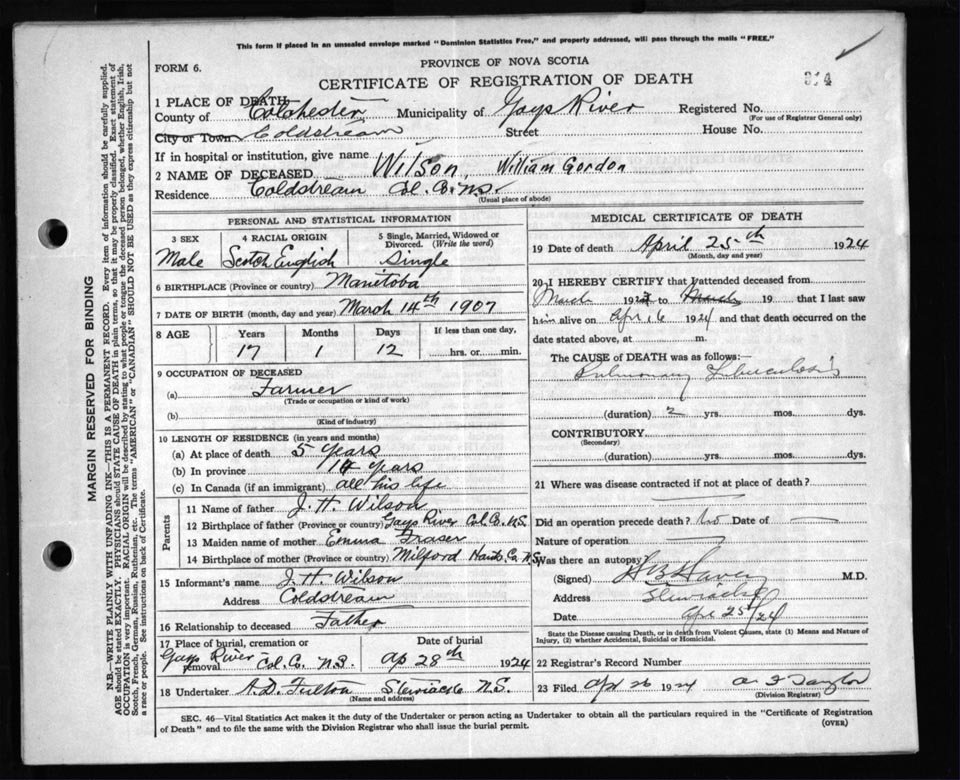 This form if placed in an unsealed envelope marked "Dominion Statistics Free," and properly addressed, will pass through the mails "FREE."
FORM 6.
PROVINCE OF NOVA SCOTIA
CERTIFICATE OF REGISTRATION OF DEATH
314
1 PLACE OF DEATH
County of Colchester Municipality of Gays River Registered No.
(For use of Registrar General only)
City or Town Coldstream Street House No.
If in hospital or institution, give name
2 NAME OF DECEASED Wilson, William Gordon
Residence Coldstream Col. Co. N.S.
(Usual place of abode)
PERSONAL AND STATISTICAL INFORMATION
3 SEX 4 RACIAL ORIGIN 5 Single, Married, Widowed or Divorced. (Write the word)
Male Scotch English Single
6 BIRTHPLACE (Province or country) Manitoba
7 DATE OF BIRTH (month, day and year) March 14th 1907
8 AGE Years Months Days If less than one day,
17 1 12 hrs. or min.
9 OCCUPATION OF DECEASED
(a) Farmer
(Trade or occupation or kind of work)
(b)
(Kind of industry)
10 LENGTH OF RESIDENCE (in years and months)
(a) At place of death 5 years
(b) In province 14 years
(c) In Canada (if an immigrant) all his life
Parents
11 Name of father J. H. Wilson
12 Birthplace of father (Province or country) Gays River Col. Co. N.S.
13 Maiden name of mother Emma Fraser
14 Birthplace of mother (Province or country) Milford Hants. Co. N.S.
15 Informant's name J. H. Wilson
Address Coldstream
16 Relationship to deceased Father
17 Place of burial, cremation or removal Date of burial
Gays River Col. Co. N.S. Ap 28th 1924
18 Undertaker A. D. Fulton Stewiacke N.S.
(Name and address)
MEDICAL CERTIFICATE OF DEATH
19 Date of death April 25th 1924
(Month, day and year)
20 I HEREBY CERTIFY that I attended deceased from
March 192 to March 19 that I last saw
him alive on Apr 16 1924 and that death occurred on the
date stated above, at m.
The CAUSE of DEATH was as follows:—
Pulmonary Tuberculosis
(duration) 2 yrs. mos. dys.
CONTRIBUTORY
(Secondary)
(duration) yrs. mos. dys.
21 Where was disease contracted if not at place of death?
Did an operation precede death? No Date of
Nature of operation
Was there an autopsy?
(Signed) M.D.
Address Stewiacke
Date Apr 25/24
State the Disease causing Death, or in death from Violent Causes, state (1) Means and Nature of
Injury, (2) whether Accidental, Suicidal or Homicidal.
22 Registrar's Record Number
23 Filed Apr 26 1924 Taylor
(Division Registrar)
SEC. 46—Vital Statistics Act makes it the duty of the Undertaker or person acting as Undertaker to obtain all the particulars required in the "Certificate of Registration
of Death" and to file the same with the Division Registrar who shall issue the burial permit.
(OVER)
MARGIN RESERVED FOR BINDING
N.B.—WRITE PLAINLY WITH UNFADING INK—THIS IS A PERMANENT RECORD. Every item of information should be carefully supplied.
AGE should be stated EXACTLY. PHYSICIANS should STATE CAUSE OF DEATH in plain terms, so that it may be properly classified. Exact statement of
OCCUPATION is very important. RACIAL ORIGIN will be described by stating to what people or tongue the deceased person belonged, whether English, Irish,
Scotch, French, German, Russian, Ruthenian, etc. The terms "AMERICAN" or "CANADIAN" SHOULD NOT BE USED as they express citizenship but not
a race or people. See instructions on back of Certificate.